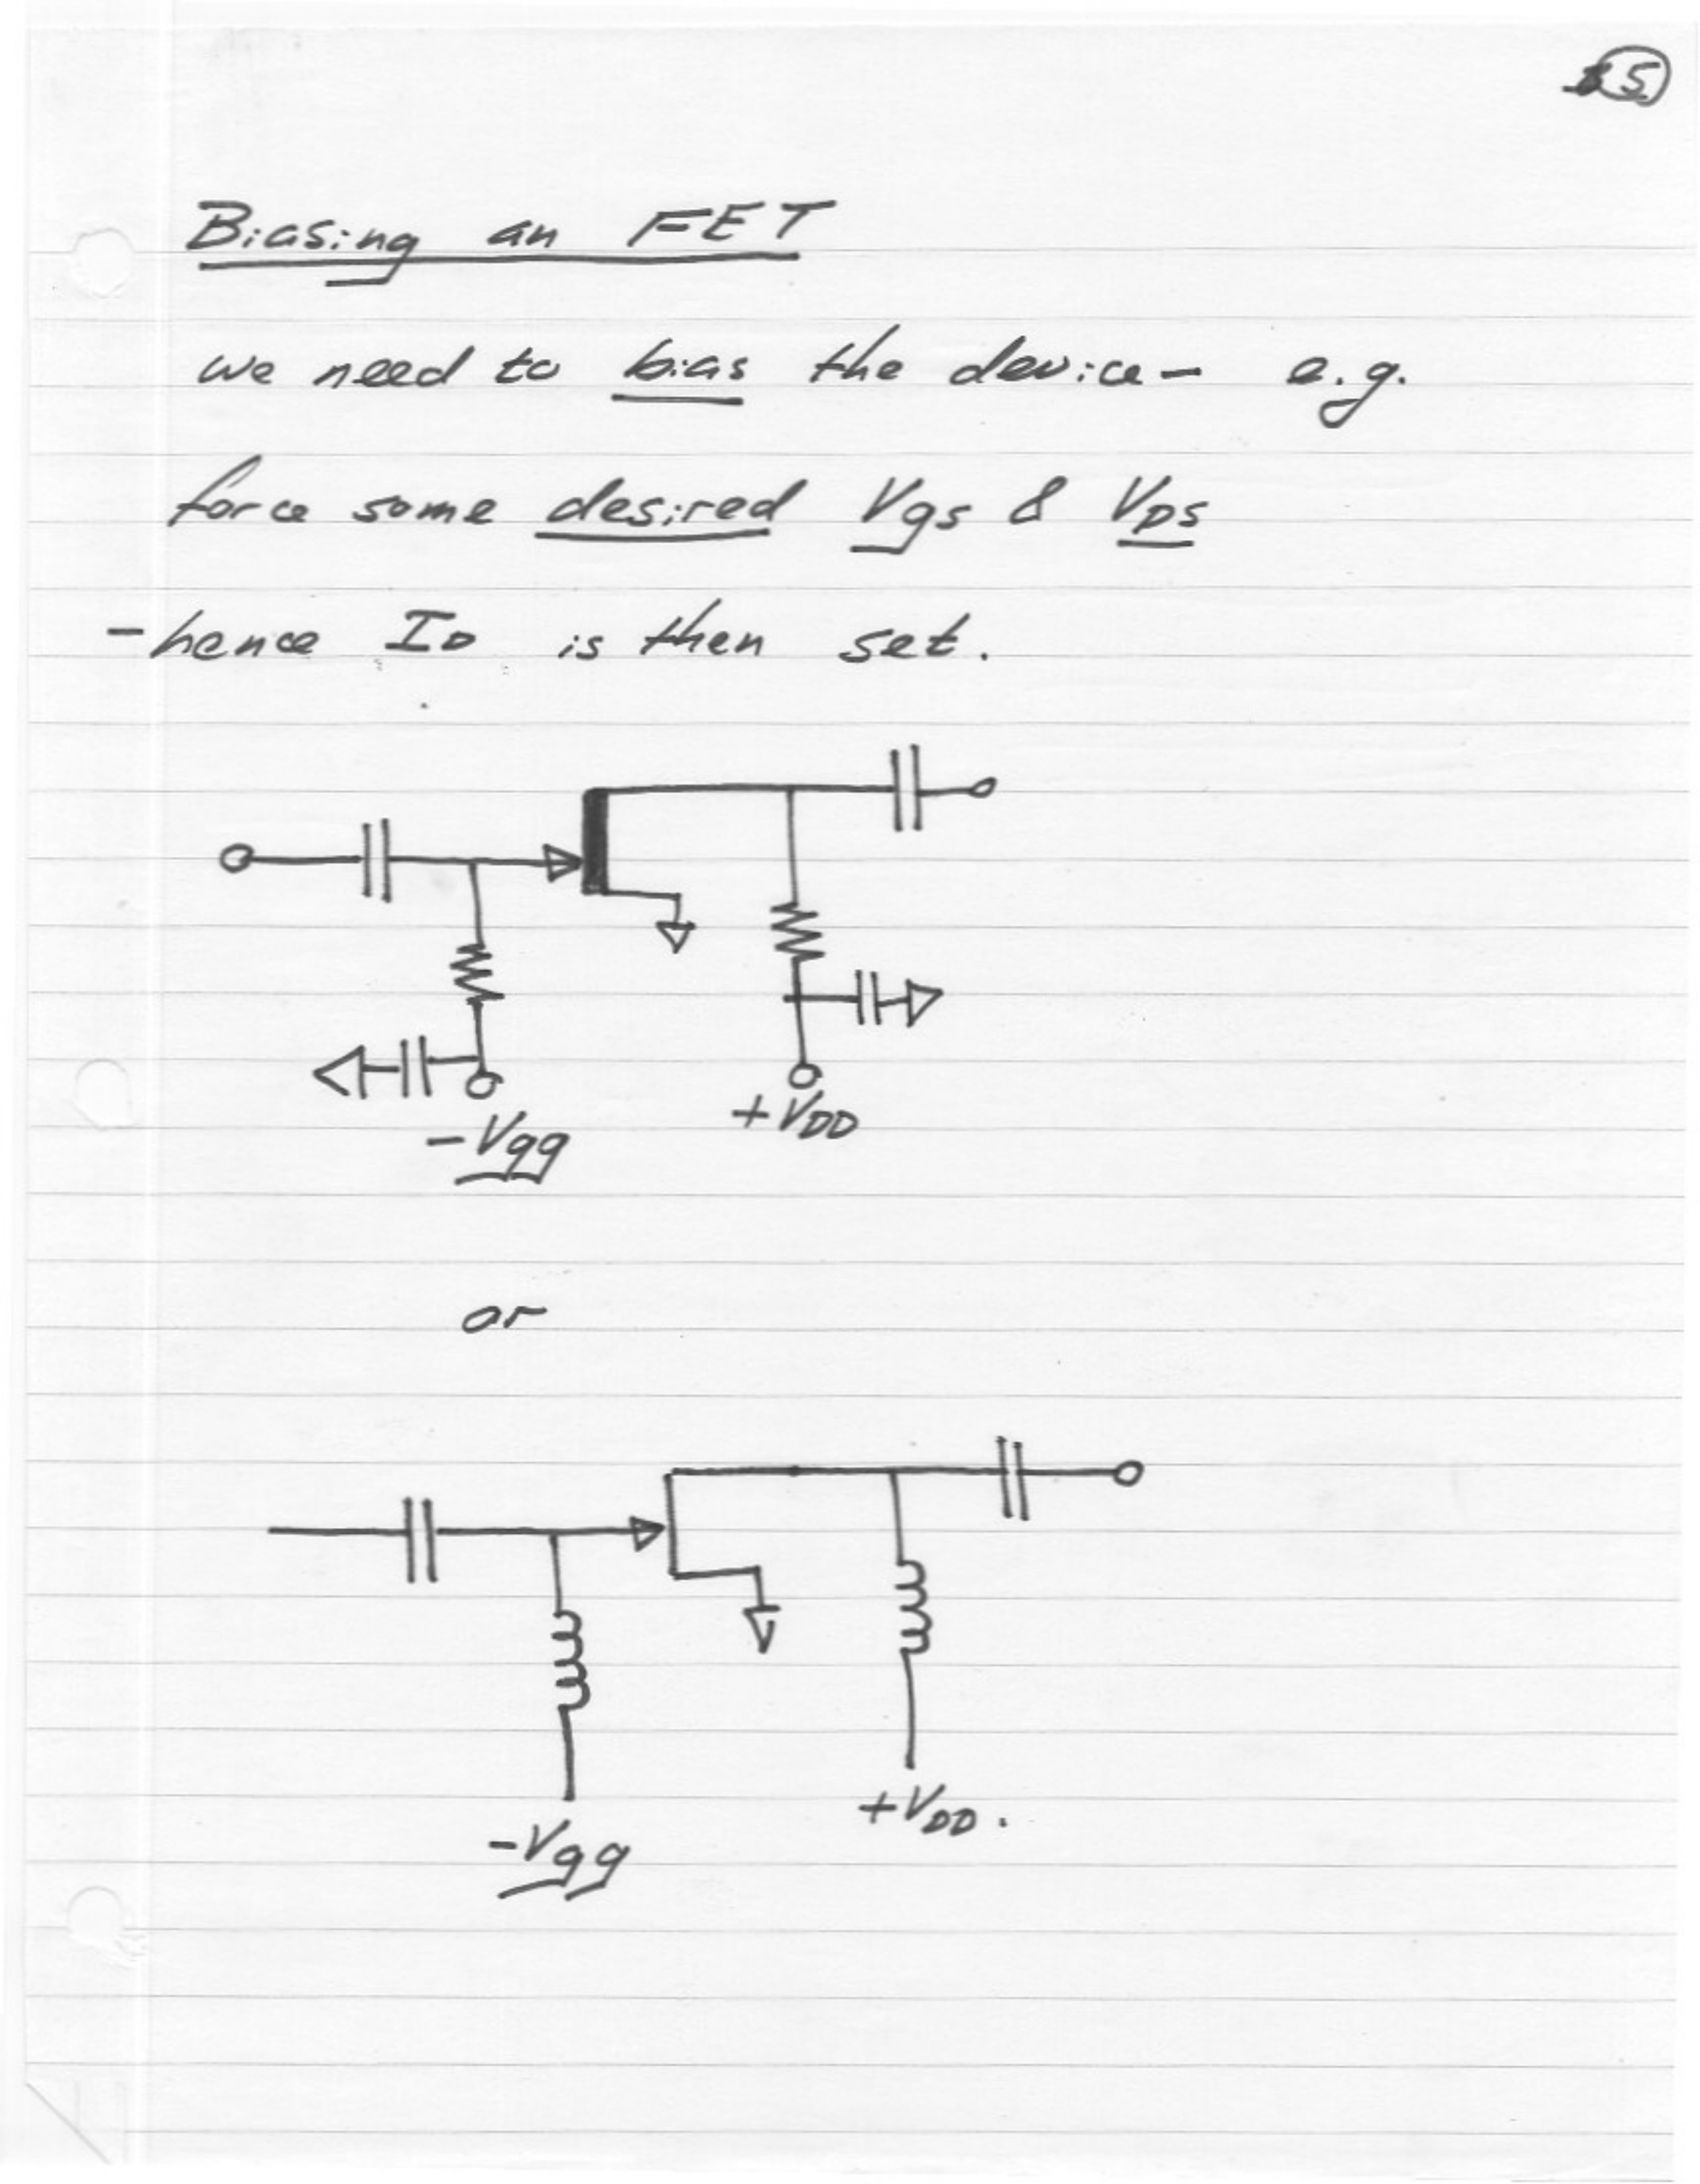 5
Biasing an FET
we need to bias the device - e.g.
force some desired Vgs & VDS
- hence ID is then set.
+VDD
-Vgg
or
+VDD.
-Vgg